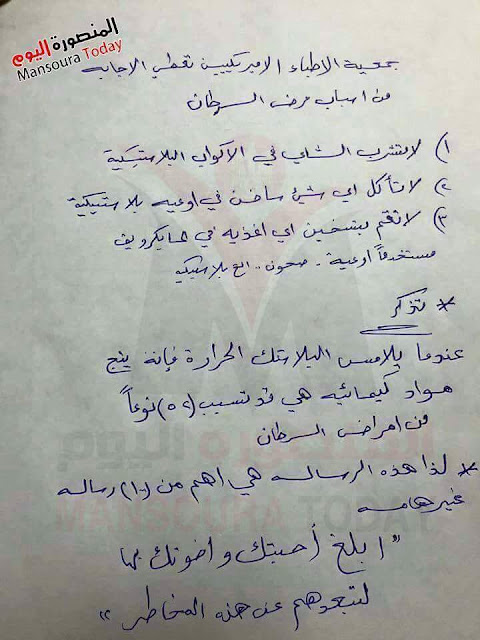 المنصورة اليوم
Mansoura Today
جمعية الاطباء الامريكيين تعطي الاجابه
من اسباب مرض السرطان
١) لا تشرب الشاي في الاكواب البلاستيكية
٢) لا تأكل اي شئ ساخن في اوعيه بلاستيكية
٣) لا تقم بتسخين اي اغذيه في مايكرويف
مستخدماً اوعية - صحون - الخ بلاستيكيه
* تذكر
عندما يلامس البلاستك الحرارة فإنه ينتج
مواد كيمائيه هي قد تسبب (٥٢) نوعاً
من امراض السرطان
* لذا هذه الرساله هي اهم من (١٠٠) رساله
غير هامه
" ابلغ أحبتك واخوتك بها
لتبعدهم عن هذه المخاطر "
المنصورة اليوم
MANSOURA TODAY